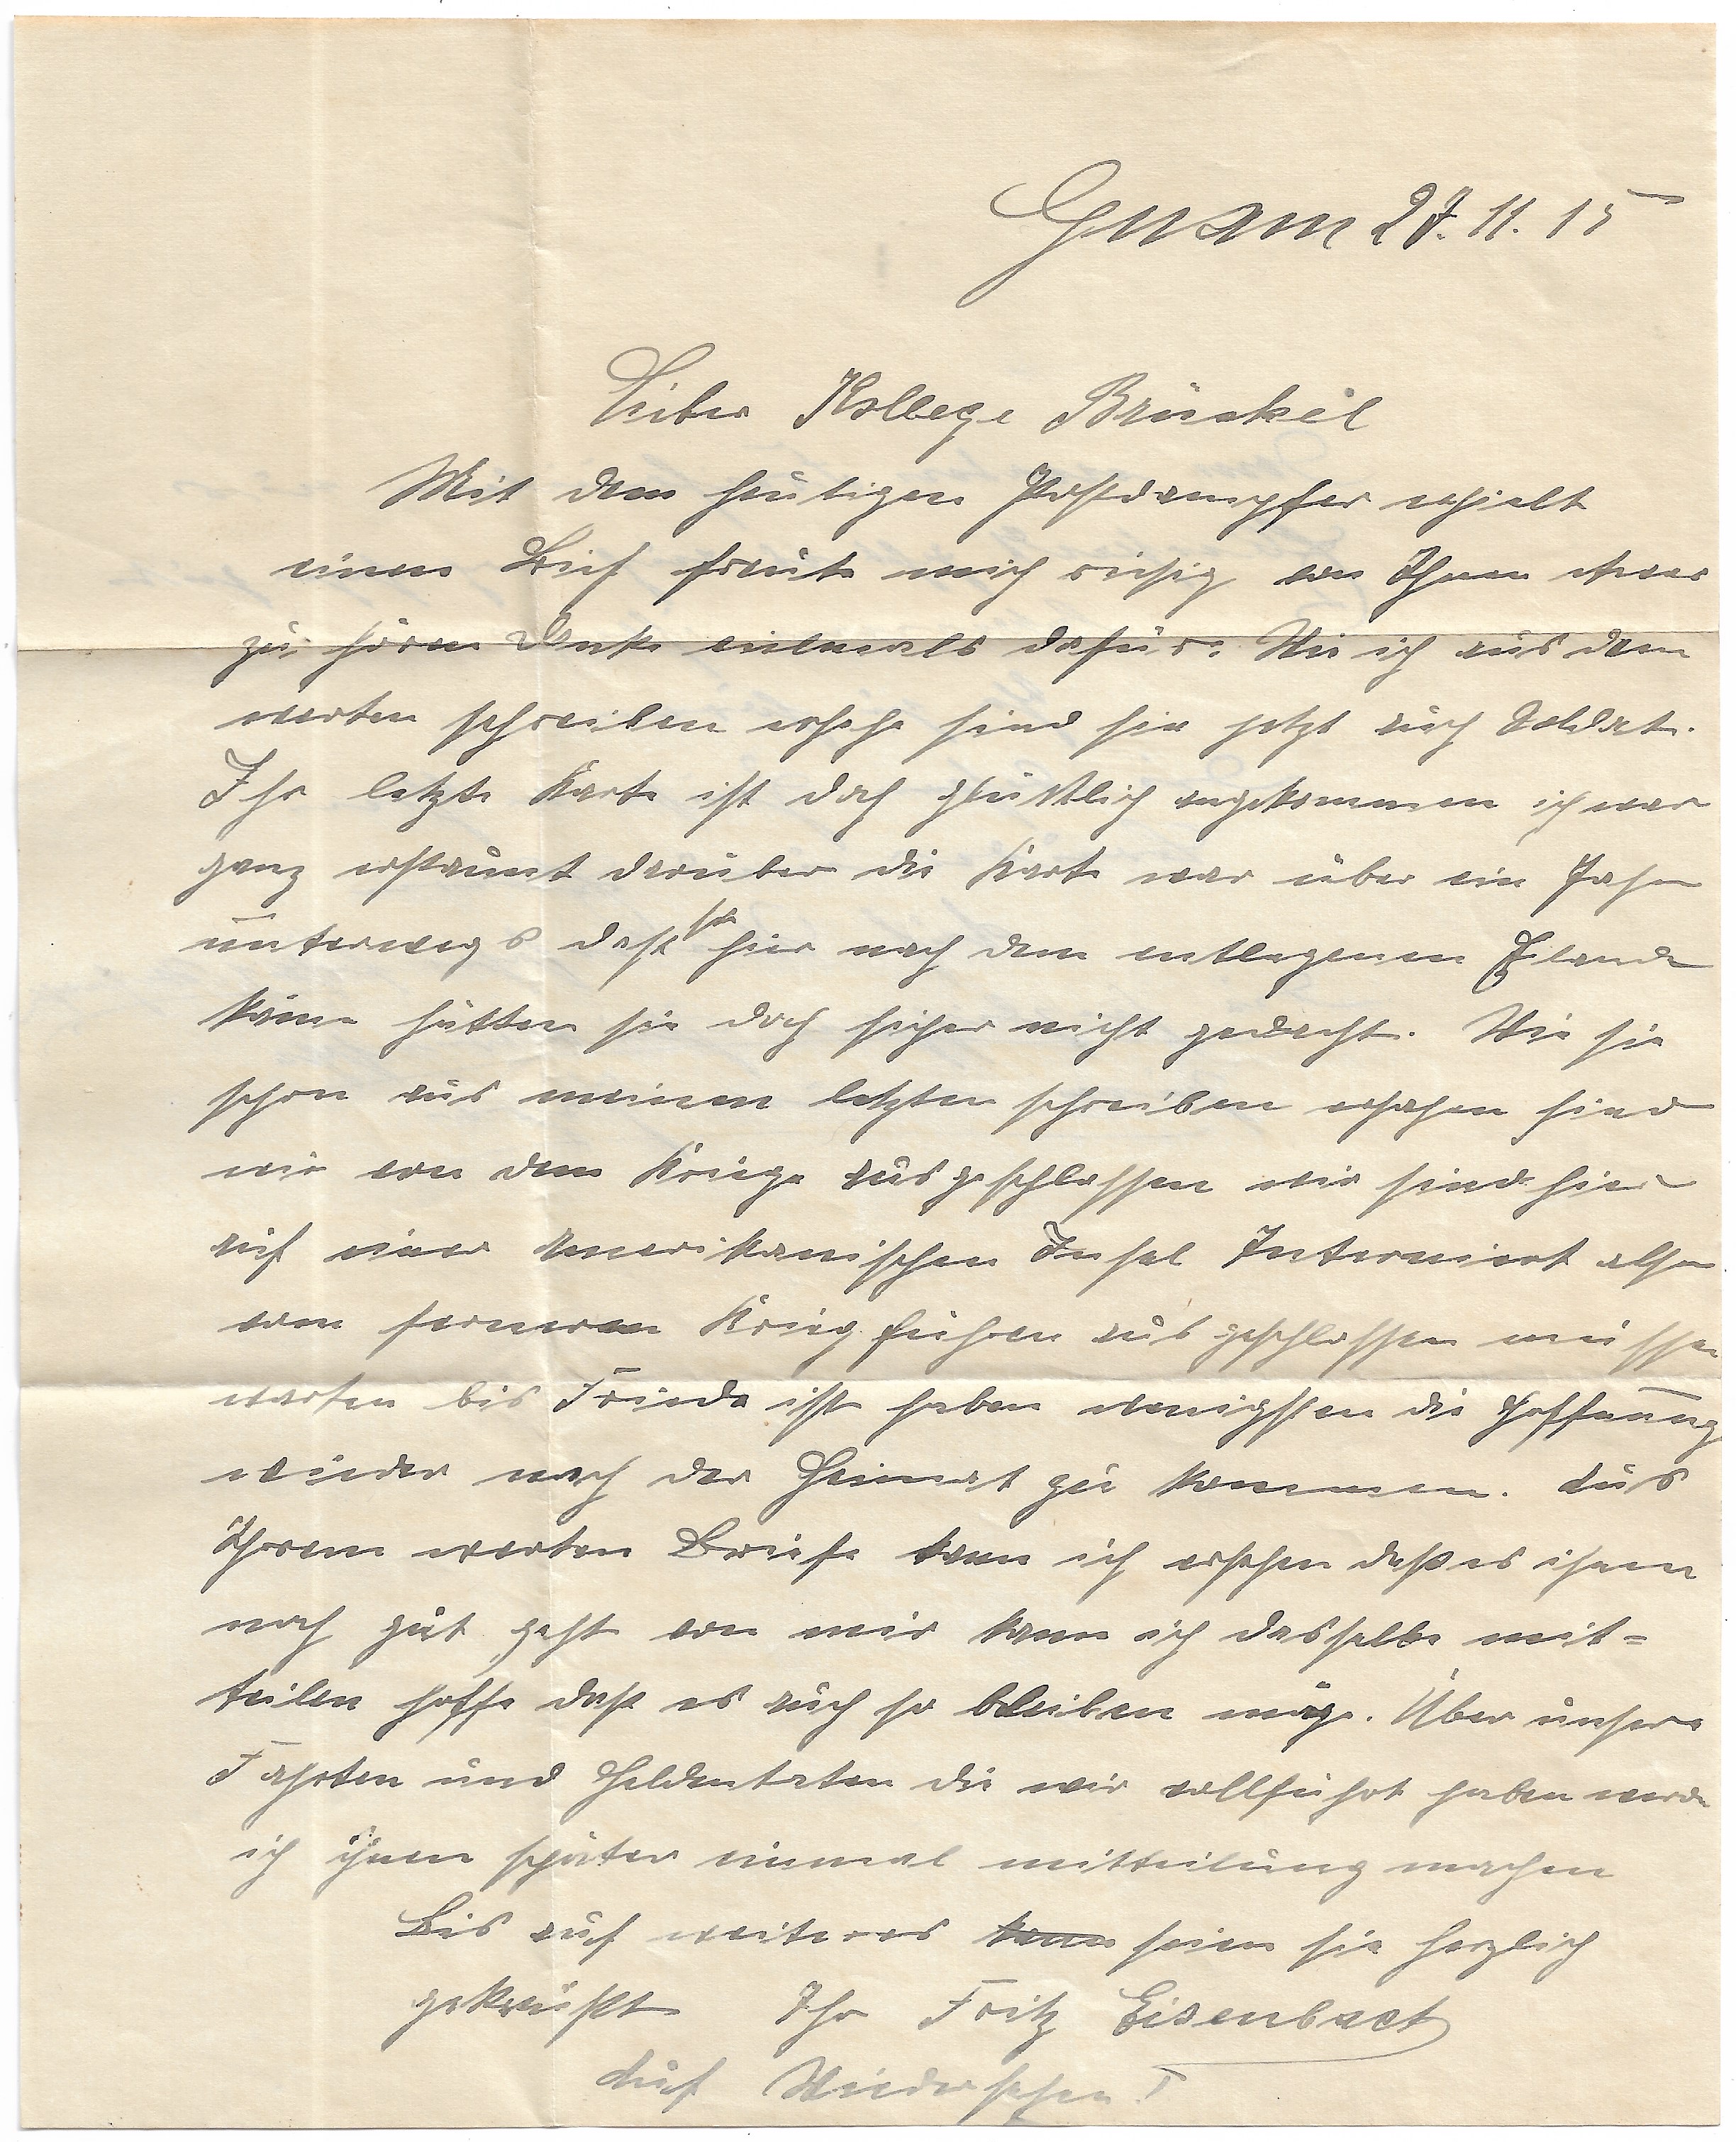 Guam 27.11.15
Lieber Kollege Brückel
Mit dem heutigen Postdampfer erhielt
einen Brief freute mich riesig von Ihnen etwas
zu hören Danke vielmals dafür. Wie ich aus dem
werten schreiben ersehe sind sie jetzt auch Soldat.
Ihr letzte Karte ist doch glücklich angekommen ich war
ganz erstaunt darüber die Karte war über ein Jahr
unterwegs daß sie hier nach dem entlegenen Eiland
käme hätten sie doch sicher nicht gedacht. Wie sie
schon aus meinem letzten schreiben ersahen sind
wir von dem Kriege ausgeschlossen wir sind hier
auf einer Amerikanischen Insel Interniert also
vom ferneren Krieg führen ausgeschlossen müssen
warten bis Friede ist haben wenigsten die Hoffnung
wieder nach der Heimat zu kommen. Aus
Ihrem werten Briefe kann ich ersehen daß es ihnen
noch gut geht von mir kann ich dasselbe mit=
teilen hoffe daß es auch so bleiben möge. Über unsere
Fahrten und Heldentaten die wir vollführt haben werde
ich ihnen später einmal mitteilung machen
Bis auf weiteres kann seien sie herzlich
gekrüßt Ihr Fritz Eisenbach
Auf Wiedersehen!